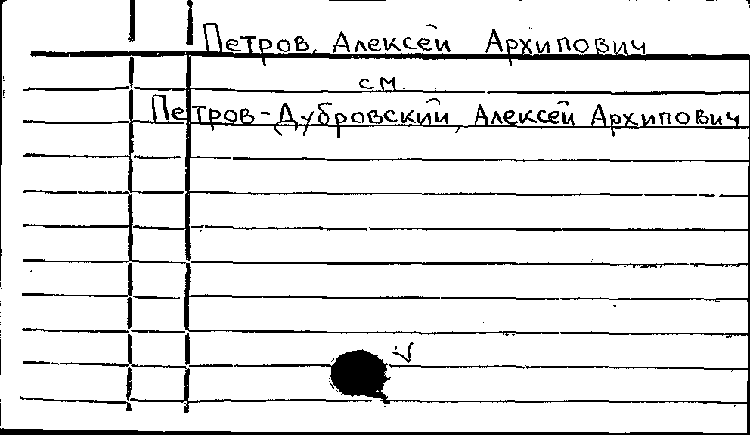 Петров, Алексей Архипович
см.
Петров-Дубровский, Алексей Архипович